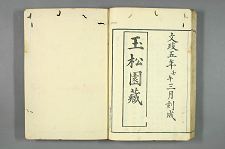 文政五年壬午三月刻成
玉松園藏